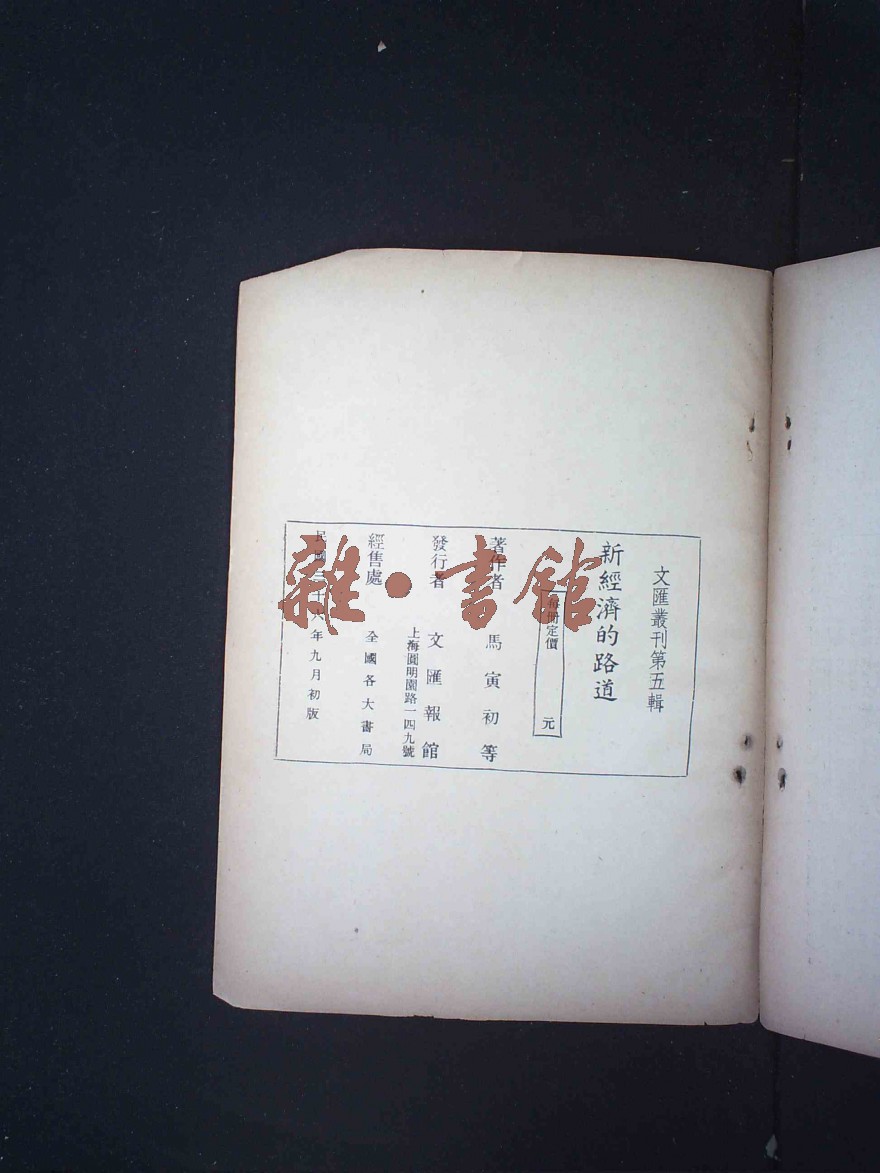 文匯叢刊第五輯
新經濟的路道
每冊定價 元
著作者 馬寅初等
發行者 文匯報館
上海圓明園路一四九號
經售處 全國各大書局
民國三十六年九月初版
雜·書館